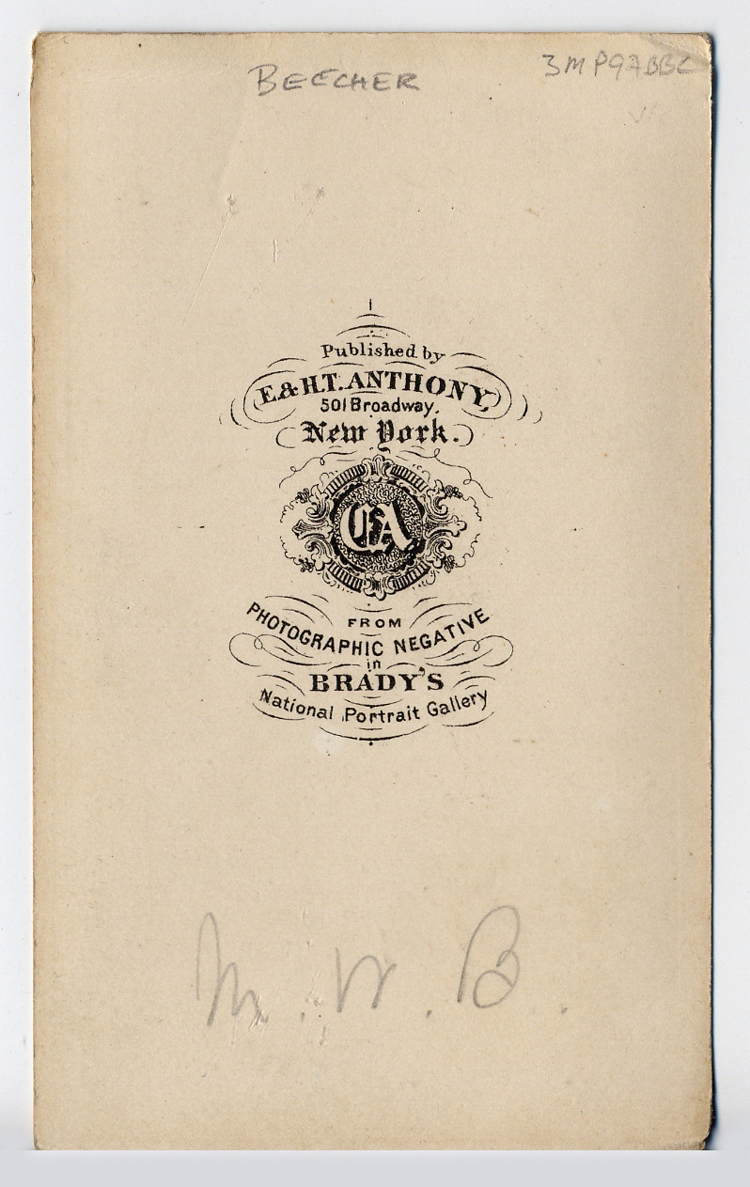 BEECHER
Published by
E. & H.T. ANTHONY,
501 Broadway,
New York.
FROM
PHOTOGRAPHIC NEGATIVE
in
BRADY'S
National Portrait Gallery
M. W. B.